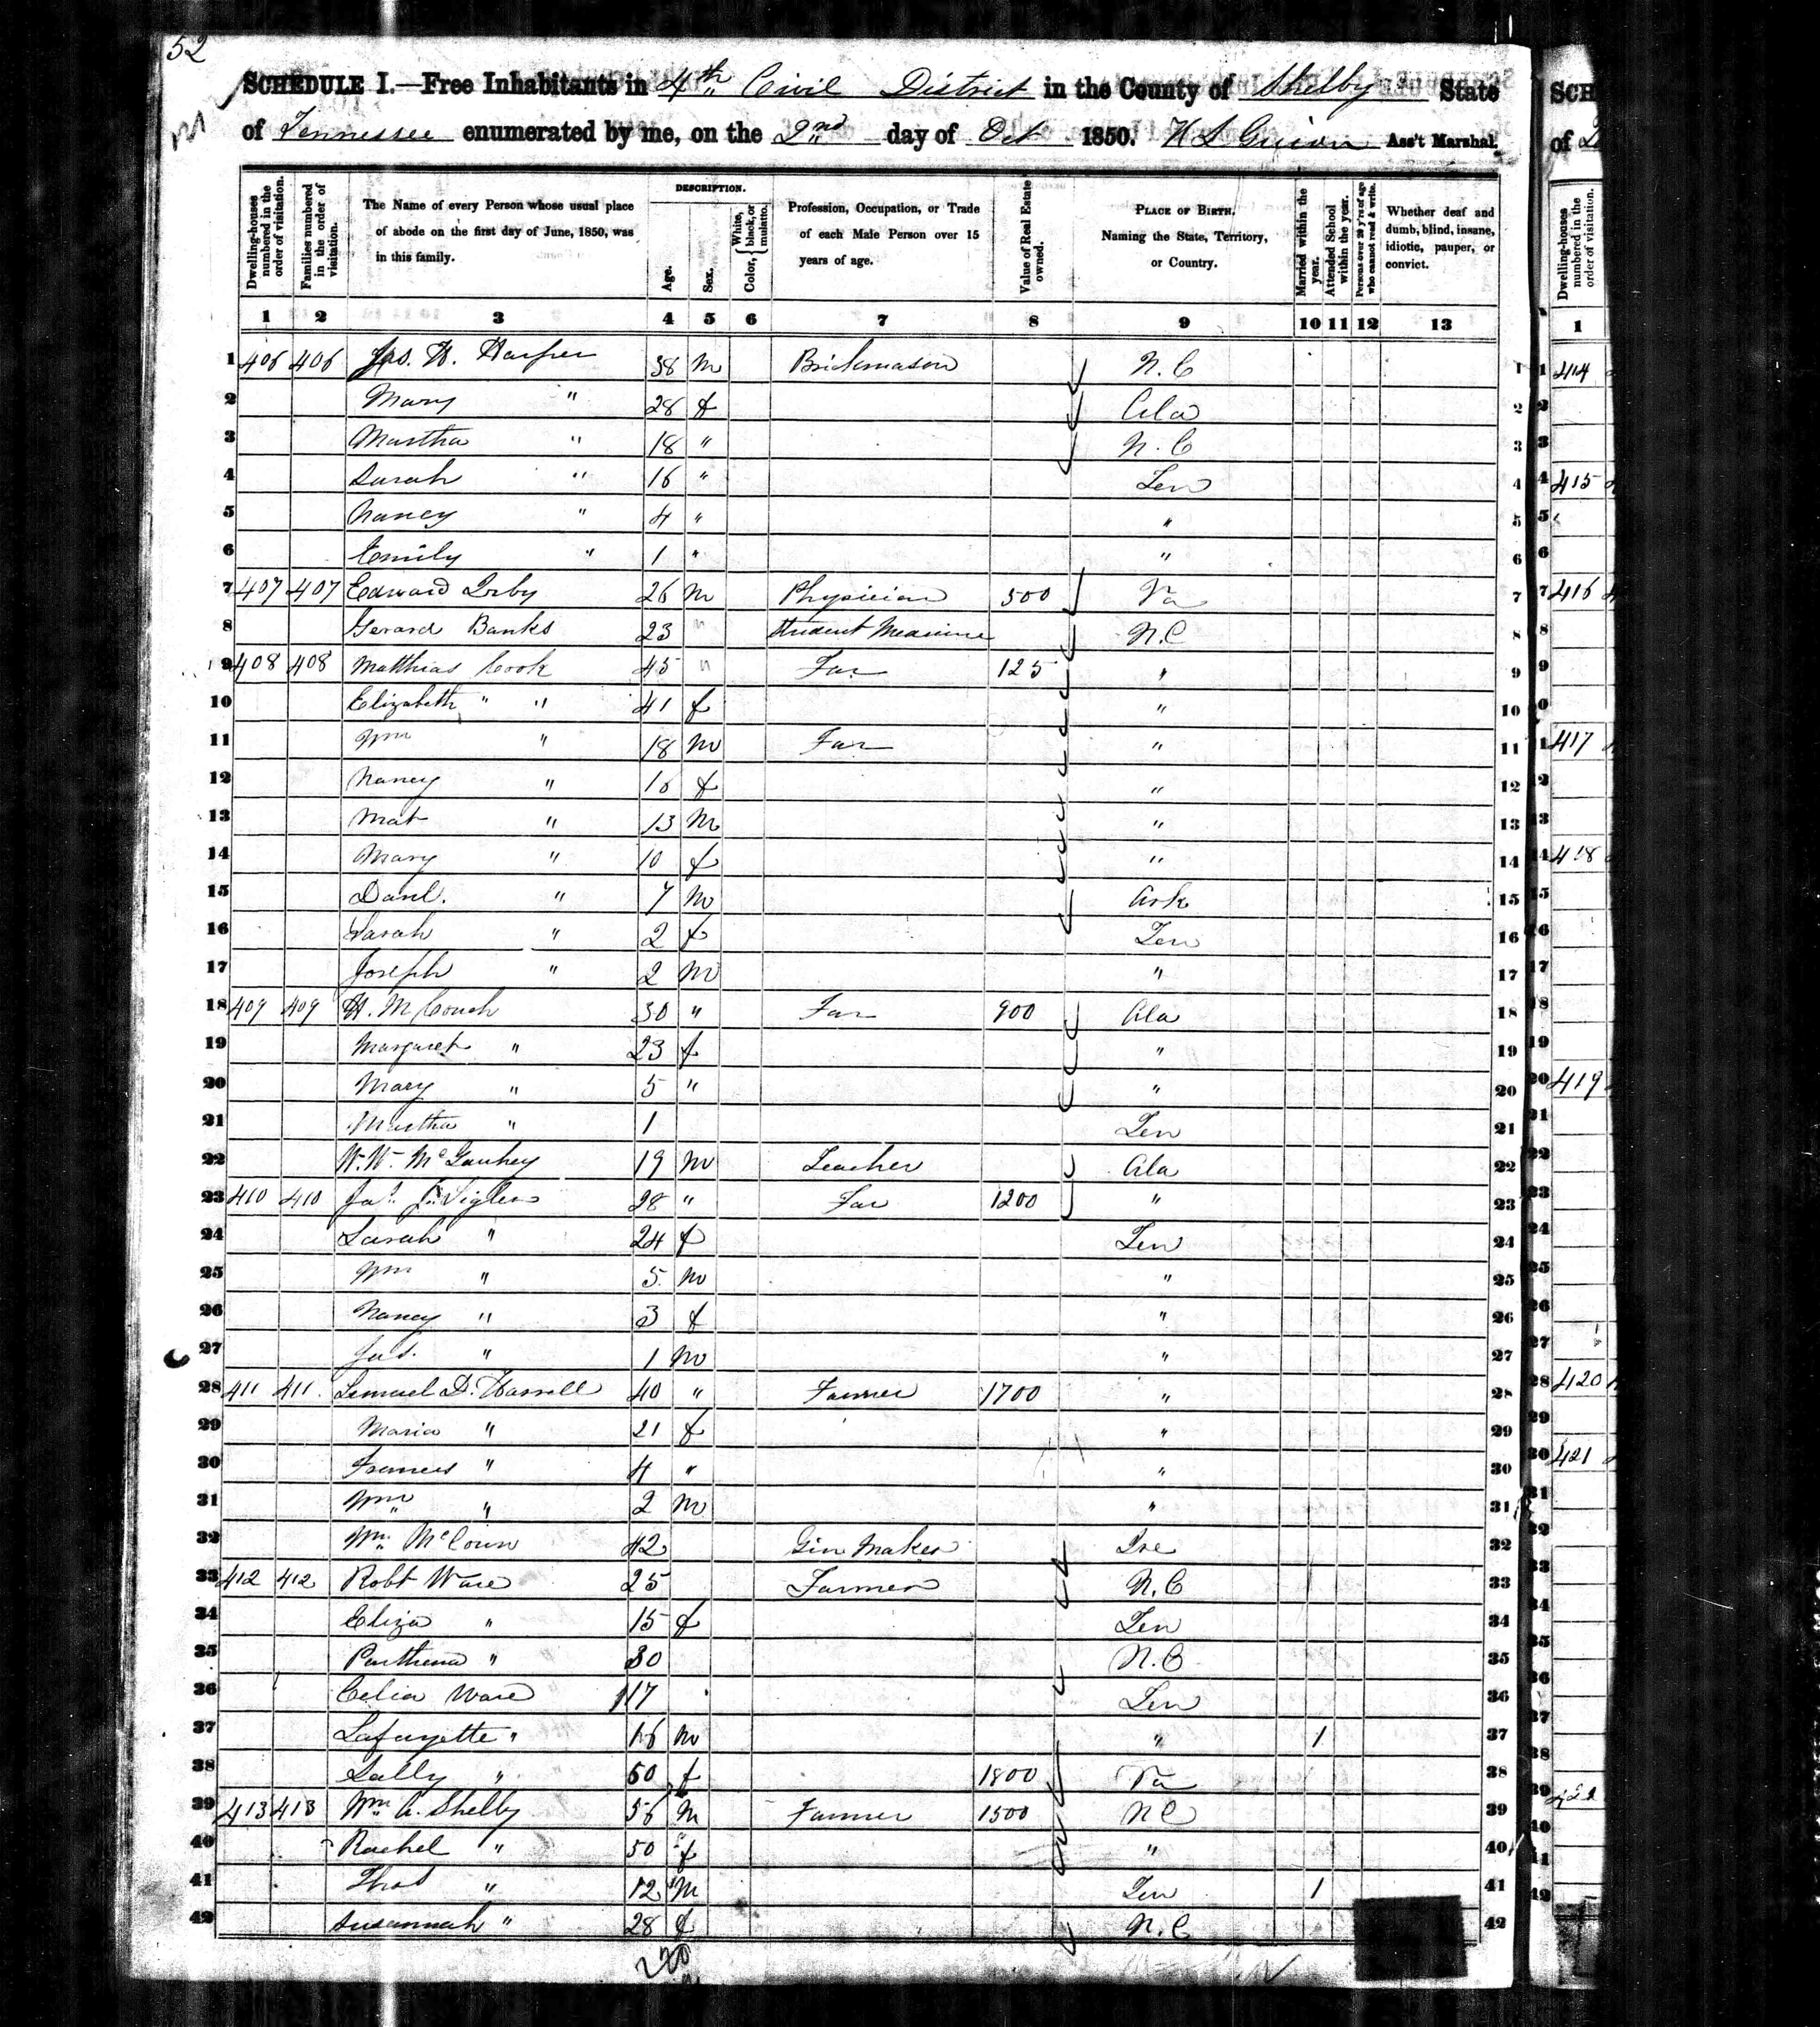 52
SCHEDULE I.—Free Inhabitants in 4th Civil District in the County of Shelby State
of Tennessee enumerated by me, on the 2nd day of Oct 1850. H S Guion Ass't Marshal.
Dwelling-houses numbered in the order of visitation.
Families numbered in the order of visitation.
The Name of every Person whose usual place of abode on the first day of June, 1850, was in this family.
DESCRIPTION.
Age.
Sex.
Color, { White, black, or mulatto.
Profession, Occupation, or Trade of each Male Person over 15 years of age.
Value of Real Estate owned.
PLACE OF BIRTH. Naming the State, Territory, or Country.
Married within the year.
Attended School within the year.
Persons over 20 y'rs of age who cannot read & write.
Whether deaf and dumb, blind, insane, idiotic, pauper, or convict.
1 2 3 4 5 6 7 8 9 10 11 12 13
1 406 406 Jas. H. Harper 38 m Brickmason N.C 1
2 Mary " 28 f Ala 2
3 Martha " 18 " N.C 3
4 Sarah " 16 " Ten 4
5 Nancy " 4 " " 5
6 Emily " 1 " " 6
7 407 407 Edward Irby 26 m Physician 500 Va 7
8 Gerard Banks 23 " Student Medicine N.C 8
9 408 408 Matthias Cook 45 " Far 125 " 9
10 Elizabeth " " 41 f " 10
11 Wm " 18 m Far " 11
12 Nancy " 16 f " 12
13 Mat " 13 m " 13
14 Mary " 10 f " 14
15 Danl. " 7 m Ark 15
16 Sarah " 2 f Ten 16
17 Joseph " 2 m " 17
18 409 409 H. M Couch 30 " Far 900 Ala 18
19 Margaret " 23 f " 19
20 Mary " 5 " " 20
21 Martha " 1 Ten 21
22 W. W. McGauhey 19 m Teacher Ala 22
23 410 410 Jas. J. Sigler 28 " Far 1200 " 23
24 Sarah " 24 f Ten 24
25 Wm " 5 m " 25
26 Nancy " 3 f " 26
27 Jas. " 1 m " 27
28 411 411 Lemuel D. Harrell 40 " Farmer 1700 " 28
29 Maria " 21 f " 29
30 Frances " 4 " " 30
31 Wm " 2 m " 31
32 Wm McCown 42 Gin Maker Ire 32
33 412 412 Robt Ware 25 Farmer N.C 33
34 Eliza " 15 f Ten 34
35 Parthena " 30 N.C 35
36 Celia Ware 17 Ten 36
37 Lafayette " 16 m " 1 37
38 Sally " 50 f 1800 Va 38
39 413 413 Wm A. Shelby 56 m Farmer 1500 N C 39
40 Rachel " 50 f " 40
41 Thos " 12 m Ten 1 41
42 Susannah " 28 f N.C 42
SCH
of
Dwelling-houses numbered in the order of visitation.
1
414
415
416
417
418
419
420
421